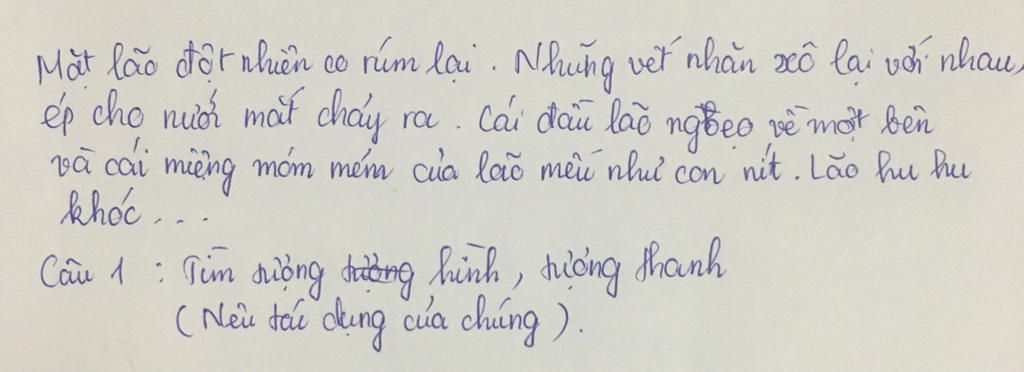 Mặt lão đột nhiên co rúm lại. Những vết nhăn xô lại với nhau,
ép cho nước mắt chảy ra. Cái đầu lão ngoẹo về một bên
và cái miệng móm mém của lão mếu như con nít. Lão hu hu
khóc...
Câu 1 : Tìm tượng hình, tượng thanh
(Nêu tác dụng của chúng).